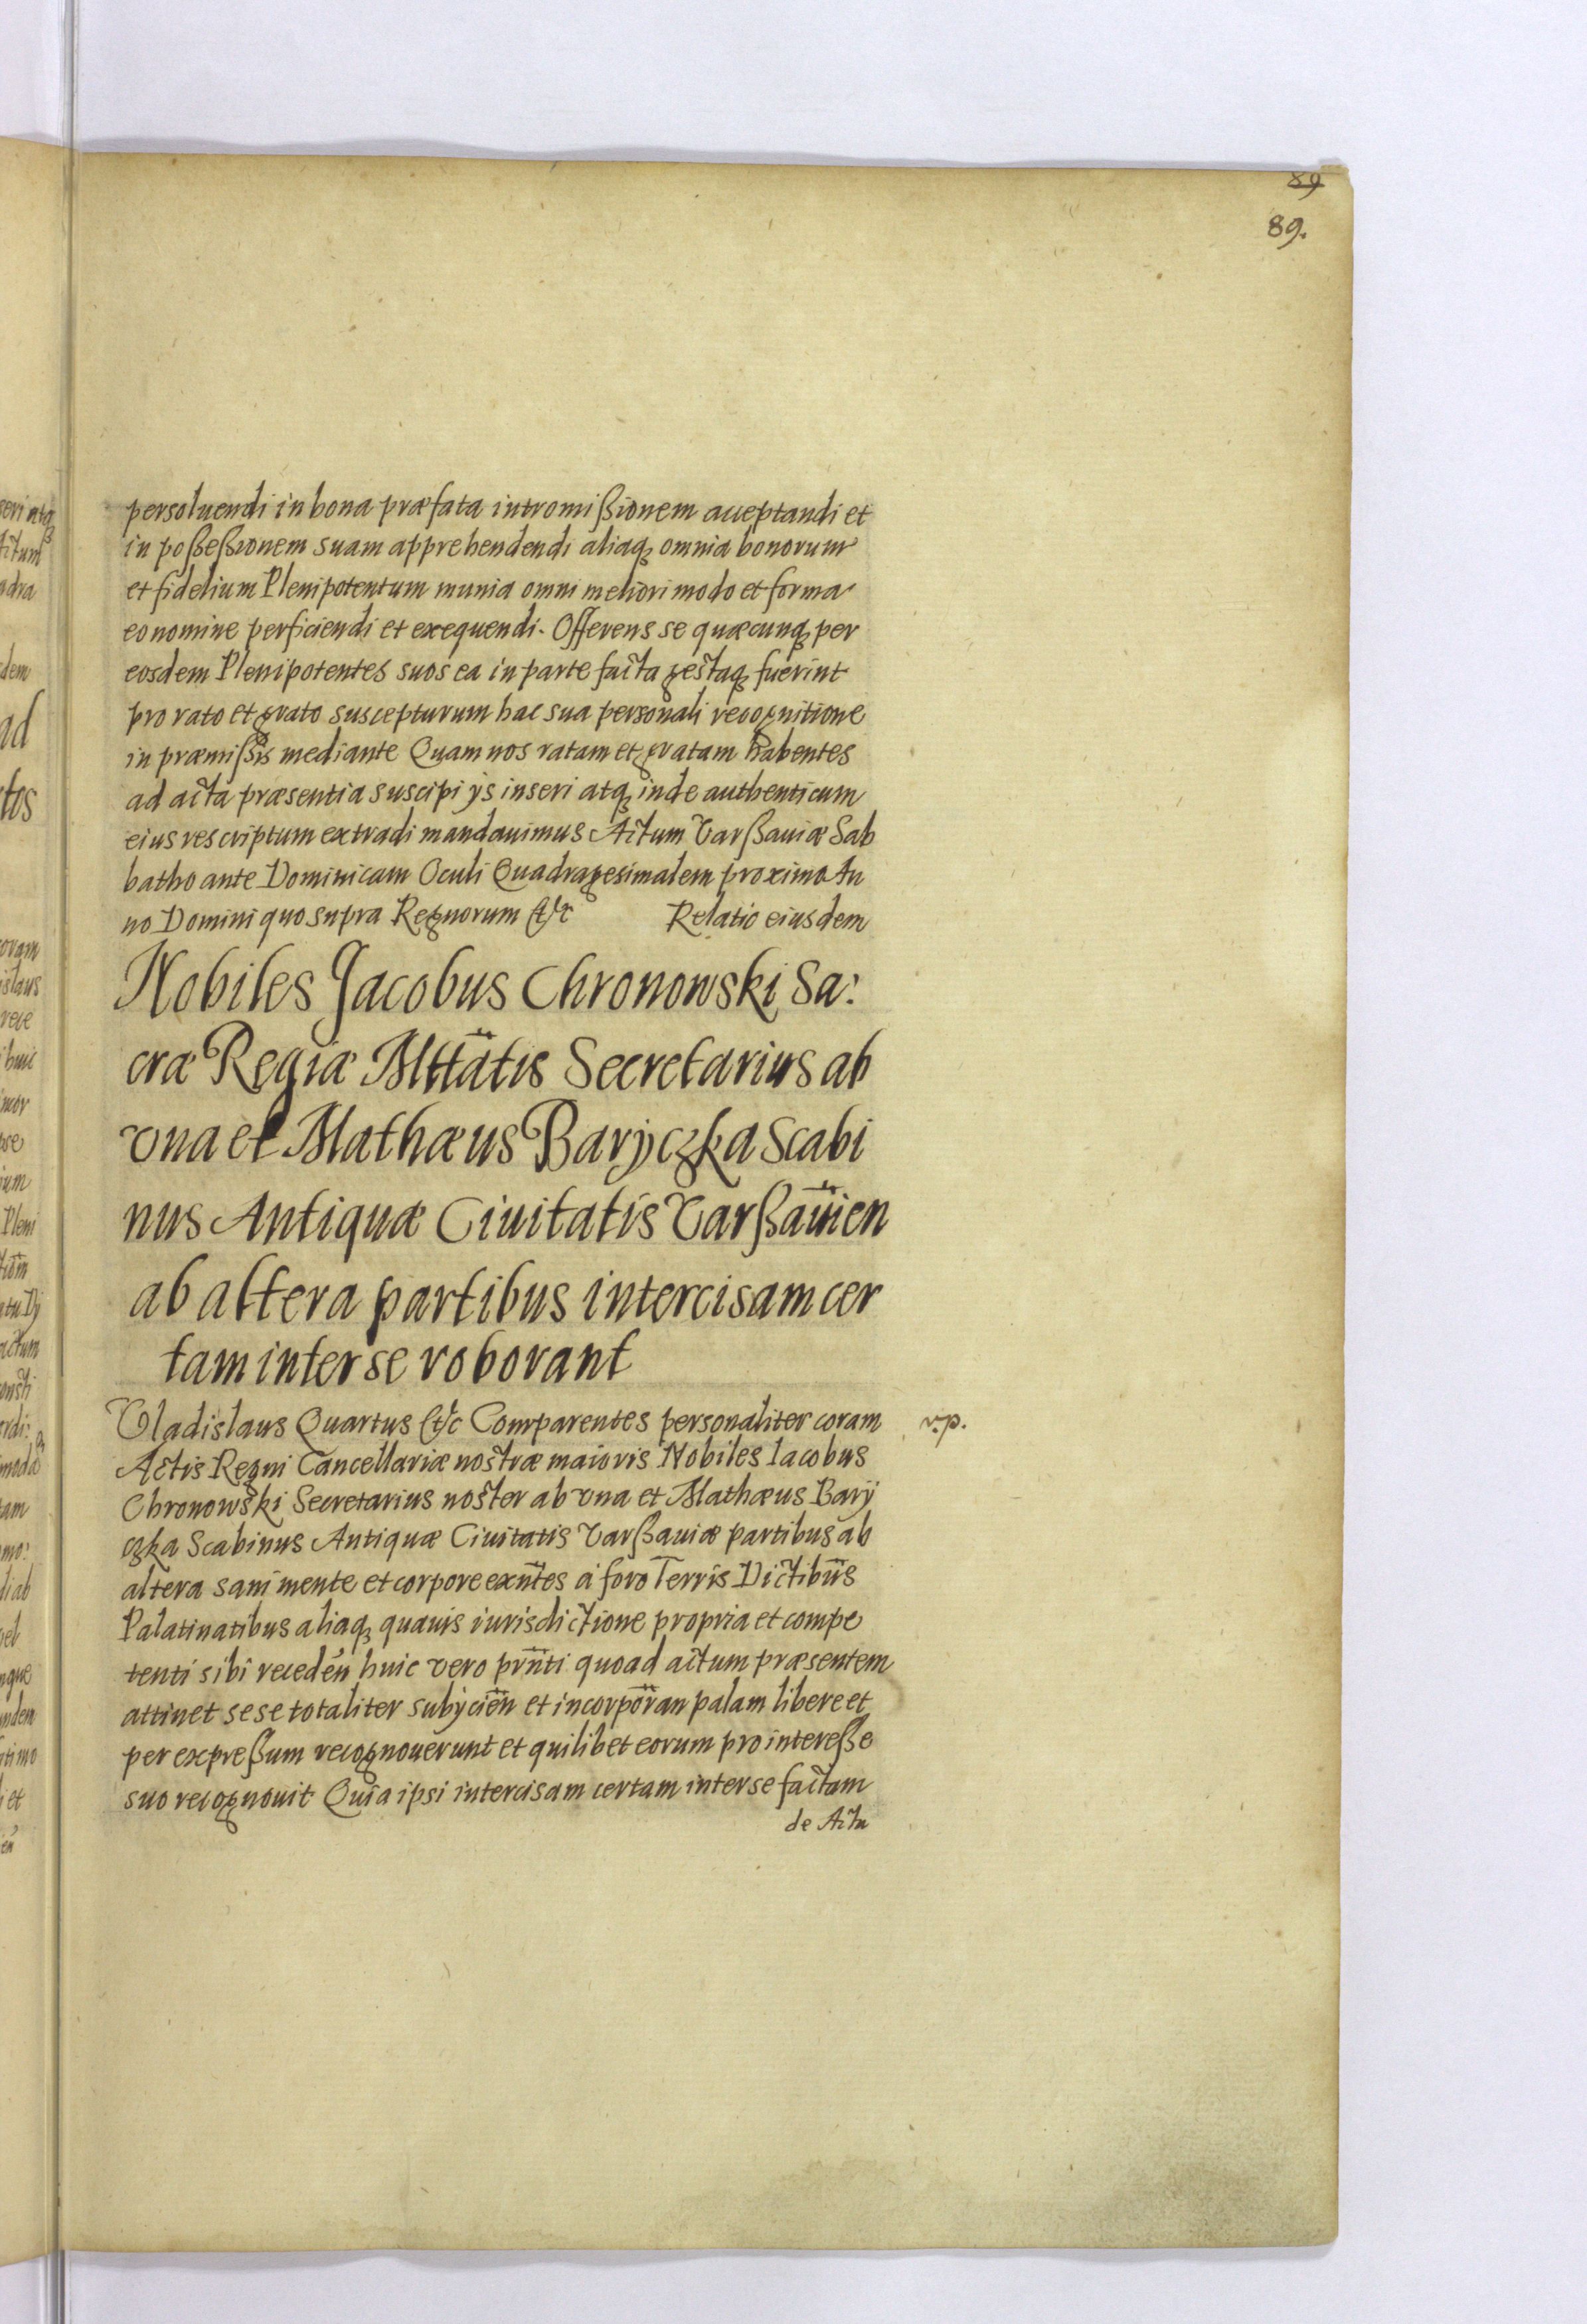 89
89.
persoluendi in bona præfata intromißionem acceptandi et
in poßeßionem suam apprehendendi aliaq omnia bonorum
et fidelium Plenipotentum munia omni meliori modo et forma
eo nomine perficiendi et exequendi. Offerens se quæcunq per
eosdem Plenipotentes suos ea in parte facta gestaq fuerint
pro rato et grato suscepturum hac sua personali recognitione
in præmißis mediante Quam nos ratam et gratam habentes
ad acta præsentia suscipi ijs inseri atq inde authenticum
eius rescriptum extradi mandauimus Actum Varßauiæ Sab
batho ante Dominicam Oculi Quadragesimalem proximo An
no Domini quo supra Regnorum &c Relatio eiusdem
Nobiles Jacobus Chronowski Sa:
cræ Regiæ Mttatis Secretarius ab
vna et Mathæus Baryczka Scabi
nus Antiquæ Ciuitatis Varßauien
ab altera partibus intercisam cer
tam inter se roborant
Vladislaus Quartus &c Comparentes personaliter coram v.p.
Actis Regni Cancellariæ nostræ maioris Nobiles Iacobus
Chronowski Secretarius noster ab vna et Mathæus Barÿ
czka Scabinus Antiquæ Ciuitatis Varßauiæ partibus ab
altera sani mente et corpore exntes á foro Terris Dictibus
Palatinatibus aliaq quauis iurisdictione propria et compe
tenti sibi receden huic vero prnti quoad actum præsentem
attinet sese totaliter subijcien et incorporan palam libere et
per expreßum recognouerunt et quilibet eorum pro intereße
suo recognouit Quia ipsi intercisam certam inter se factam
de Actu